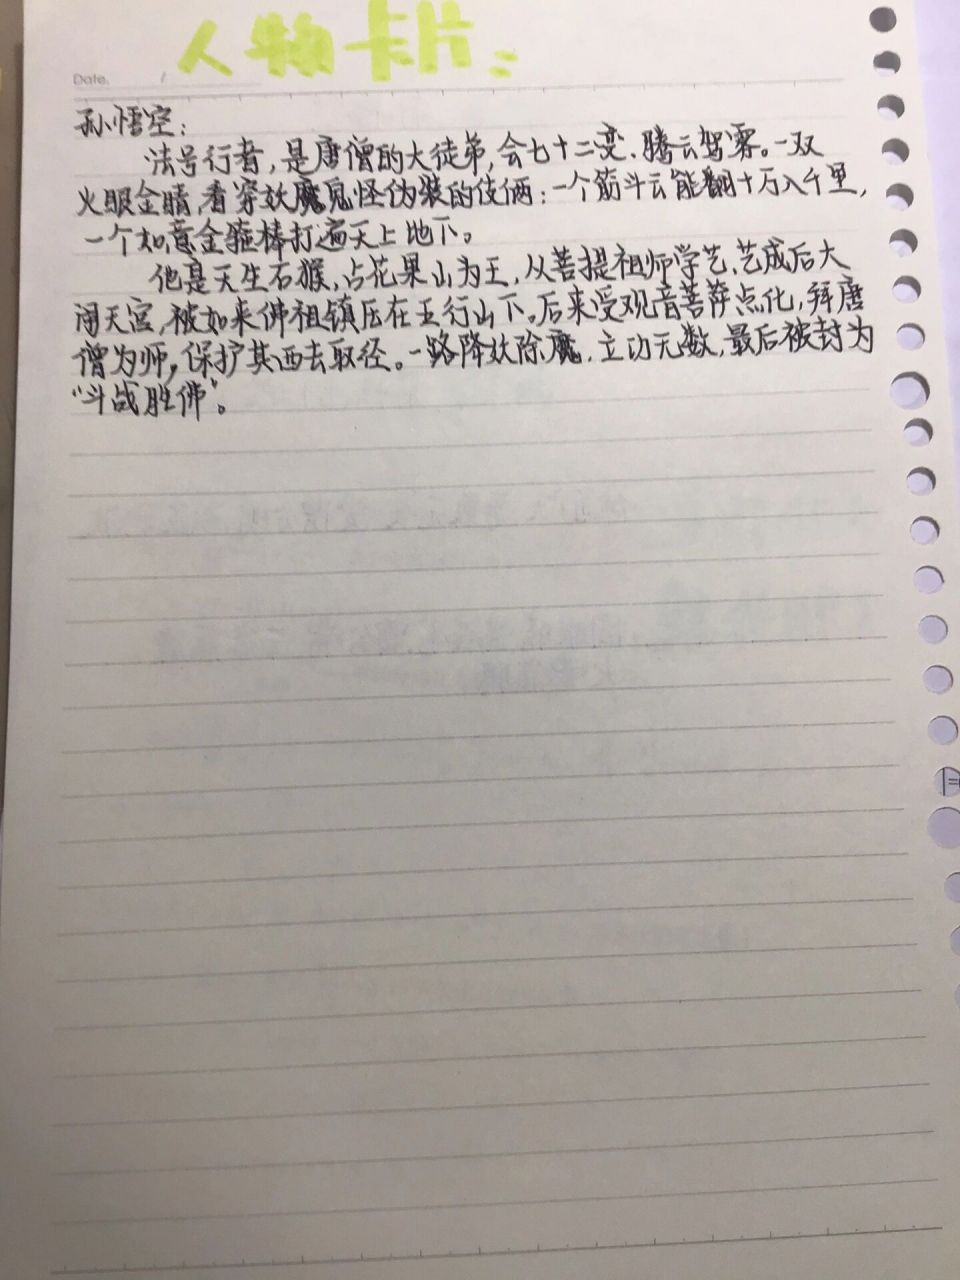 人物卡片：
Date. /
孙悟空：
法号行者，是唐僧的大徒弟，会七十二变、腾云驾雾。一双
火眼金睛，看穿妖魔鬼怪伪装的伎俩：一个筋斗云能翻十万八千里，
一个如意金箍棒打遍天上地下。
他是天生石猴，占花果山为王，从菩提祖师学艺，艺成后大
闹天宫，被如来佛祖镇压在五行山下。后来受观音菩萨点化，拜唐
僧为师，保护其西去取径。一路降妖除魔，立功无数，最后被封为
“斗战胜佛”。